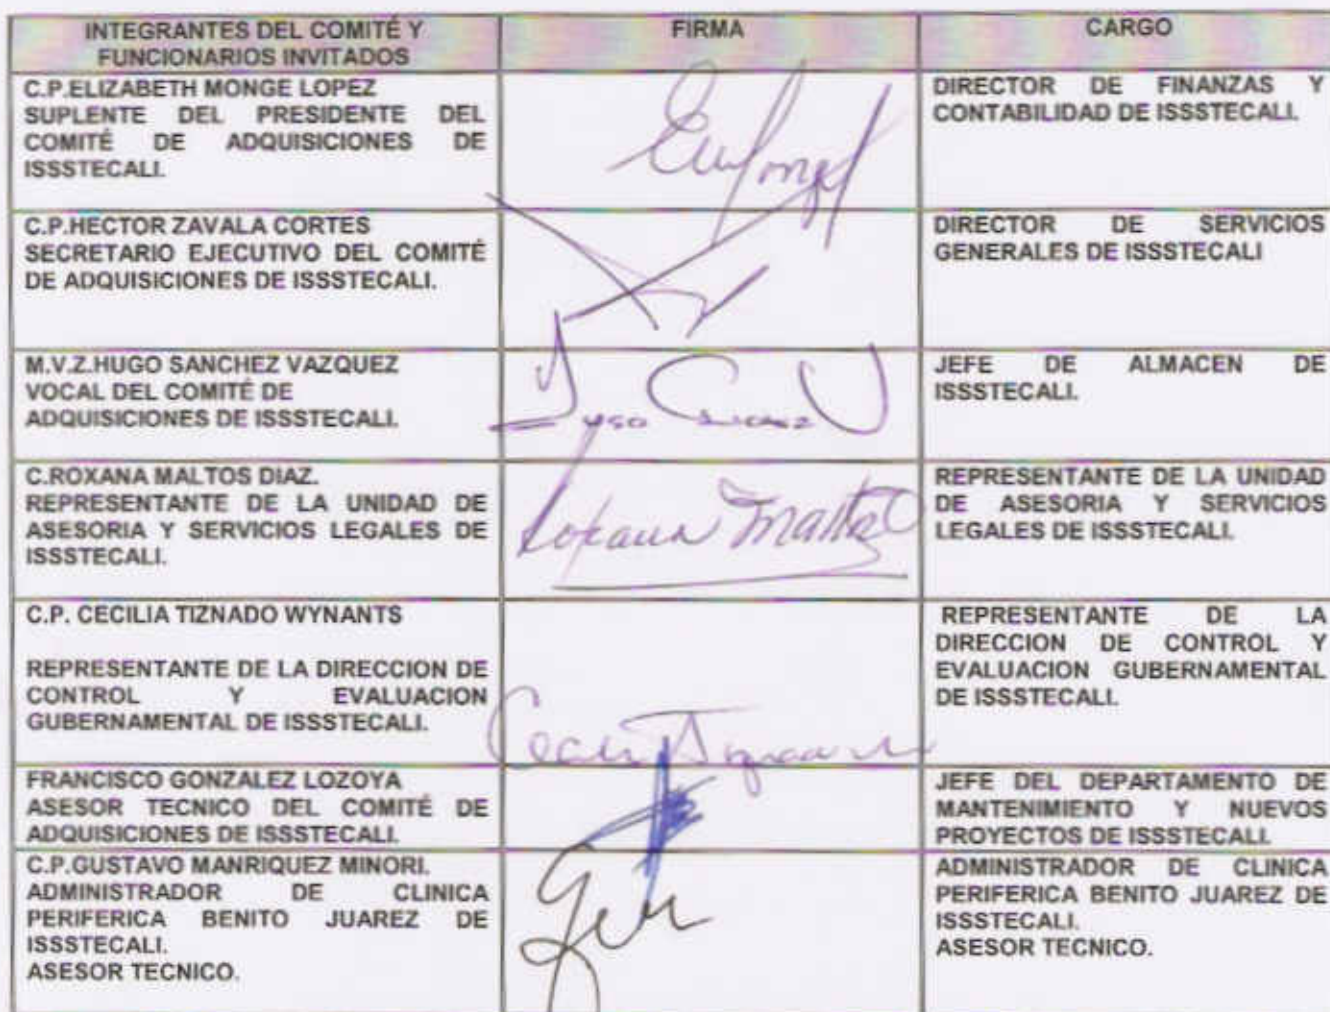 INTEGRANTES DEL COMITÉ Y
FUNCIONARIOS INVITADOS
FIRMA
CARGO
C.P.ELIZABETH MONGE LOPEZ
SUPLENTE DEL PRESIDENTE DEL
COMITÉ DE ADQUISICIONES DE
ISSSTECALI.
DIRECTOR DE FINANZAS Y
CONTABILIDAD DE ISSSTECALI.
C.P.HECTOR ZAVALA CORTES
SECRETARIO EJECUTIVO DEL COMITÉ
DE ADQUISICIONES DE ISSSTECALI.
DIRECTOR DE SERVICIOS
GENERALES DE ISSSTECALI
M.V.Z.HUGO SANCHEZ VAZQUEZ
VOCAL DEL COMITÉ DE
ADQUISICIONES DE ISSSTECALI.
JEFE DE ALMACEN DE
ISSSTECALI.
C.ROXANA MALTOS DIAZ.
REPRESENTANTE DE LA UNIDAD DE
ASESORIA Y SERVICIOS LEGALES DE
ISSSTECALI.
REPRESENTANTE DE LA UNIDAD
DE ASESORIA Y SERVICIOS
LEGALES DE ISSSTECALI.
C.P. CECILIA TIZNADO WYNANTS
REPRESENTANTE DE LA DIRECCION DE
CONTROL Y EVALUACION
GUBERNAMENTAL DE ISSSTECALI.
REPRESENTANTE DE LA
DIRECCION DE CONTROL Y
EVALUACION GUBERNAMENTAL
DE ISSSTECALI.
FRANCISCO GONZALEZ LOZOYA
ASESOR TECNICO DEL COMITÉ DE
ADQUISICIONES DE ISSSTECALI.
JEFE DEL DEPARTAMENTO DE
MANTENIMIENTO Y NUEVOS
PROYECTOS DE ISSSTECALI.
C.P.GUSTAVO MANRIQUEZ MINORI.
ADMINISTRADOR DE CLINICA
PERIFERICA BENITO JUAREZ DE
ISSSTECALI.
ASESOR TECNICO.
ADMINISTRADOR DE CLINICA
PERIFERICA BENITO JUAREZ DE
ISSSTECALI.
ASESOR TECNICO.